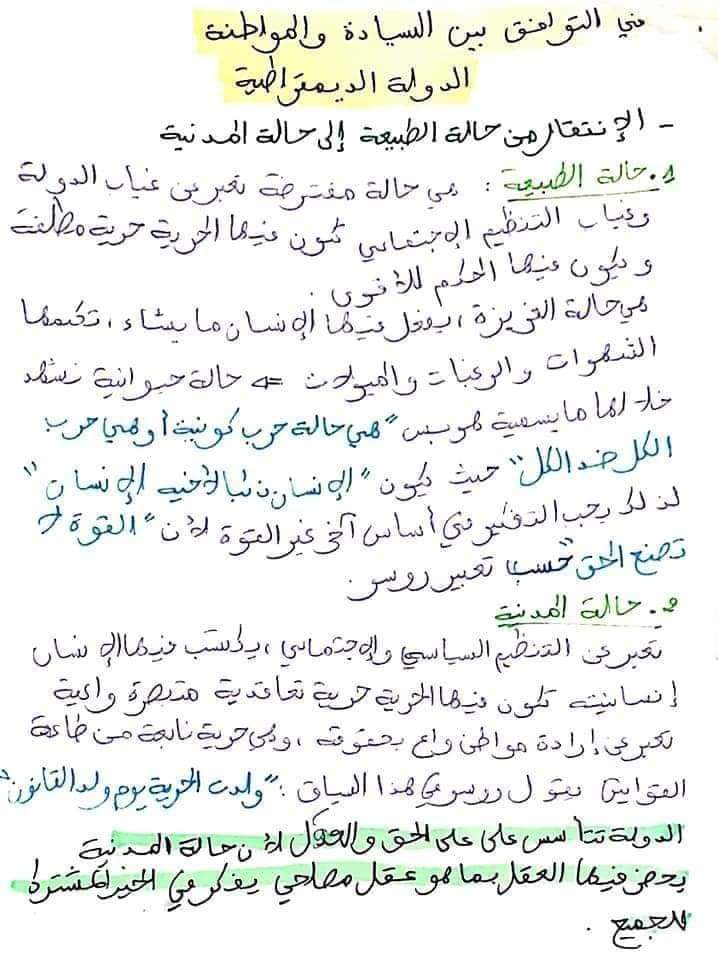 في التوافق بين السيادة والمواطنة
الدولة الديمقراطية
- الإنتقال من حالة الطبيعة إلى حالة المدنية
1. حالة الطبيعة : هي حالة مفترضة تعبر عن غياب الدولة
وغياب التنظيم الإجتماعي تكون فيها الحرية حرية مطلقة
ويكون فيها الحكم للأقوى .
هي حالة الغريزة ، يفعل فيها الإنسان ما يشاء ، تحكمها
الشهوات والرغبات والميولات => حالة حيوانية نشهد
خلالها ما يسميه هوبس "هي حالة حرب كونية أو هي حرب
الكل ضد الكل" حيث يكون "الإنسان ذئبا لأخيه الإنسان"
لذلك يجب التفكير في أساس آخر غير القوة لأن "القوة لا
تصنع الحق" حسب تعبير روسو.
2. حالة المدنية
تعبر عن التنظيم السياسي والإجتماعي ، يكتسب فيها الإنسان
إنسانيته تكون فيها الحرية حرية تعاقدية متبصرة واعية
تعبر عن إرادة مواطن واع بحقوقه ، وهي حرية نابعة من طاعة
القوانين يقول روسو في هذا السياق : "ولدت الحرية يوم ولد القانون"
الدولة تتأسس على على الحق والعدل لأن حالة المدنية
يحضر فيها العقل بما هو عقل مصلحي يفكر في الخير المشترك
للجميع .